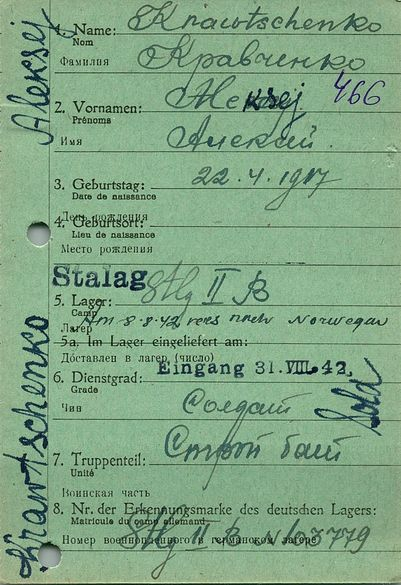 1. Name: Krawtschenko
Nom
Фамилия Кравченко
2. Vornamen: Aleksej 466
Prénoms
Имя Алексей
3. Geburtstag: 22.4.1917
Date de naissance
День рождения
4. Geburtsort:
Lieu de naissance
Место рождения
Stalag
5. Lager: Stlg II B
Camp
Лагерь Am 8.8.42 vers nach Norwegen
5a. Im Lager eingeliefert am:
Доставлен в лагерь (число) Eingang 31. VIII. 42.
6. Dienstgrad:
Grade
Чин Солдат Sold
7. Truppenteil: Строй бат
Unité
Воинская часть
8. Nr. der Erkennungsmarke des deutschen Lagers:
Matricule du camp allemand
Номер военнопленного в германском лагере Stlg II B
Krawtschenko Aleksej